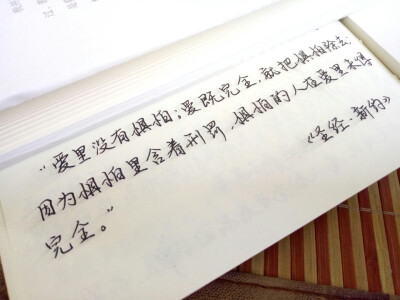 “爱里没有惧怕；爱既完全，就把惧怕除去，
因为惧怕里含着刑罚，惧怕的人在爱里未得
完全。”
《圣经·新约》